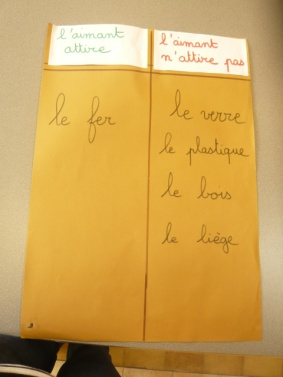 l'aimant
attire
l'aimant
n'attire pas
le fer
le verre
le plastique
le bois
le liège